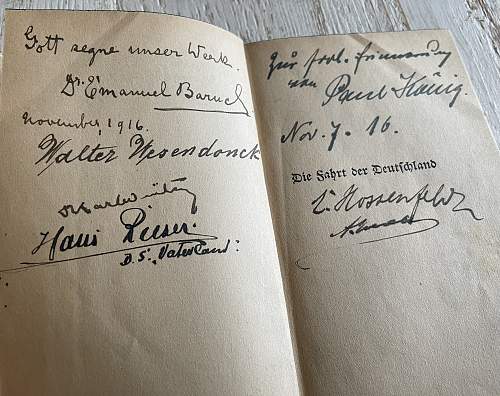 Gott segne unser Werk.
Dr. Emanuel Baruch
November, 1916.
Walter Wesendonck
Hans
D. S. „Vaterland"
Zur frdl. Erinnerung
von Paul König.
Nov. 7. 16.
Die Fahrt der Deutschland